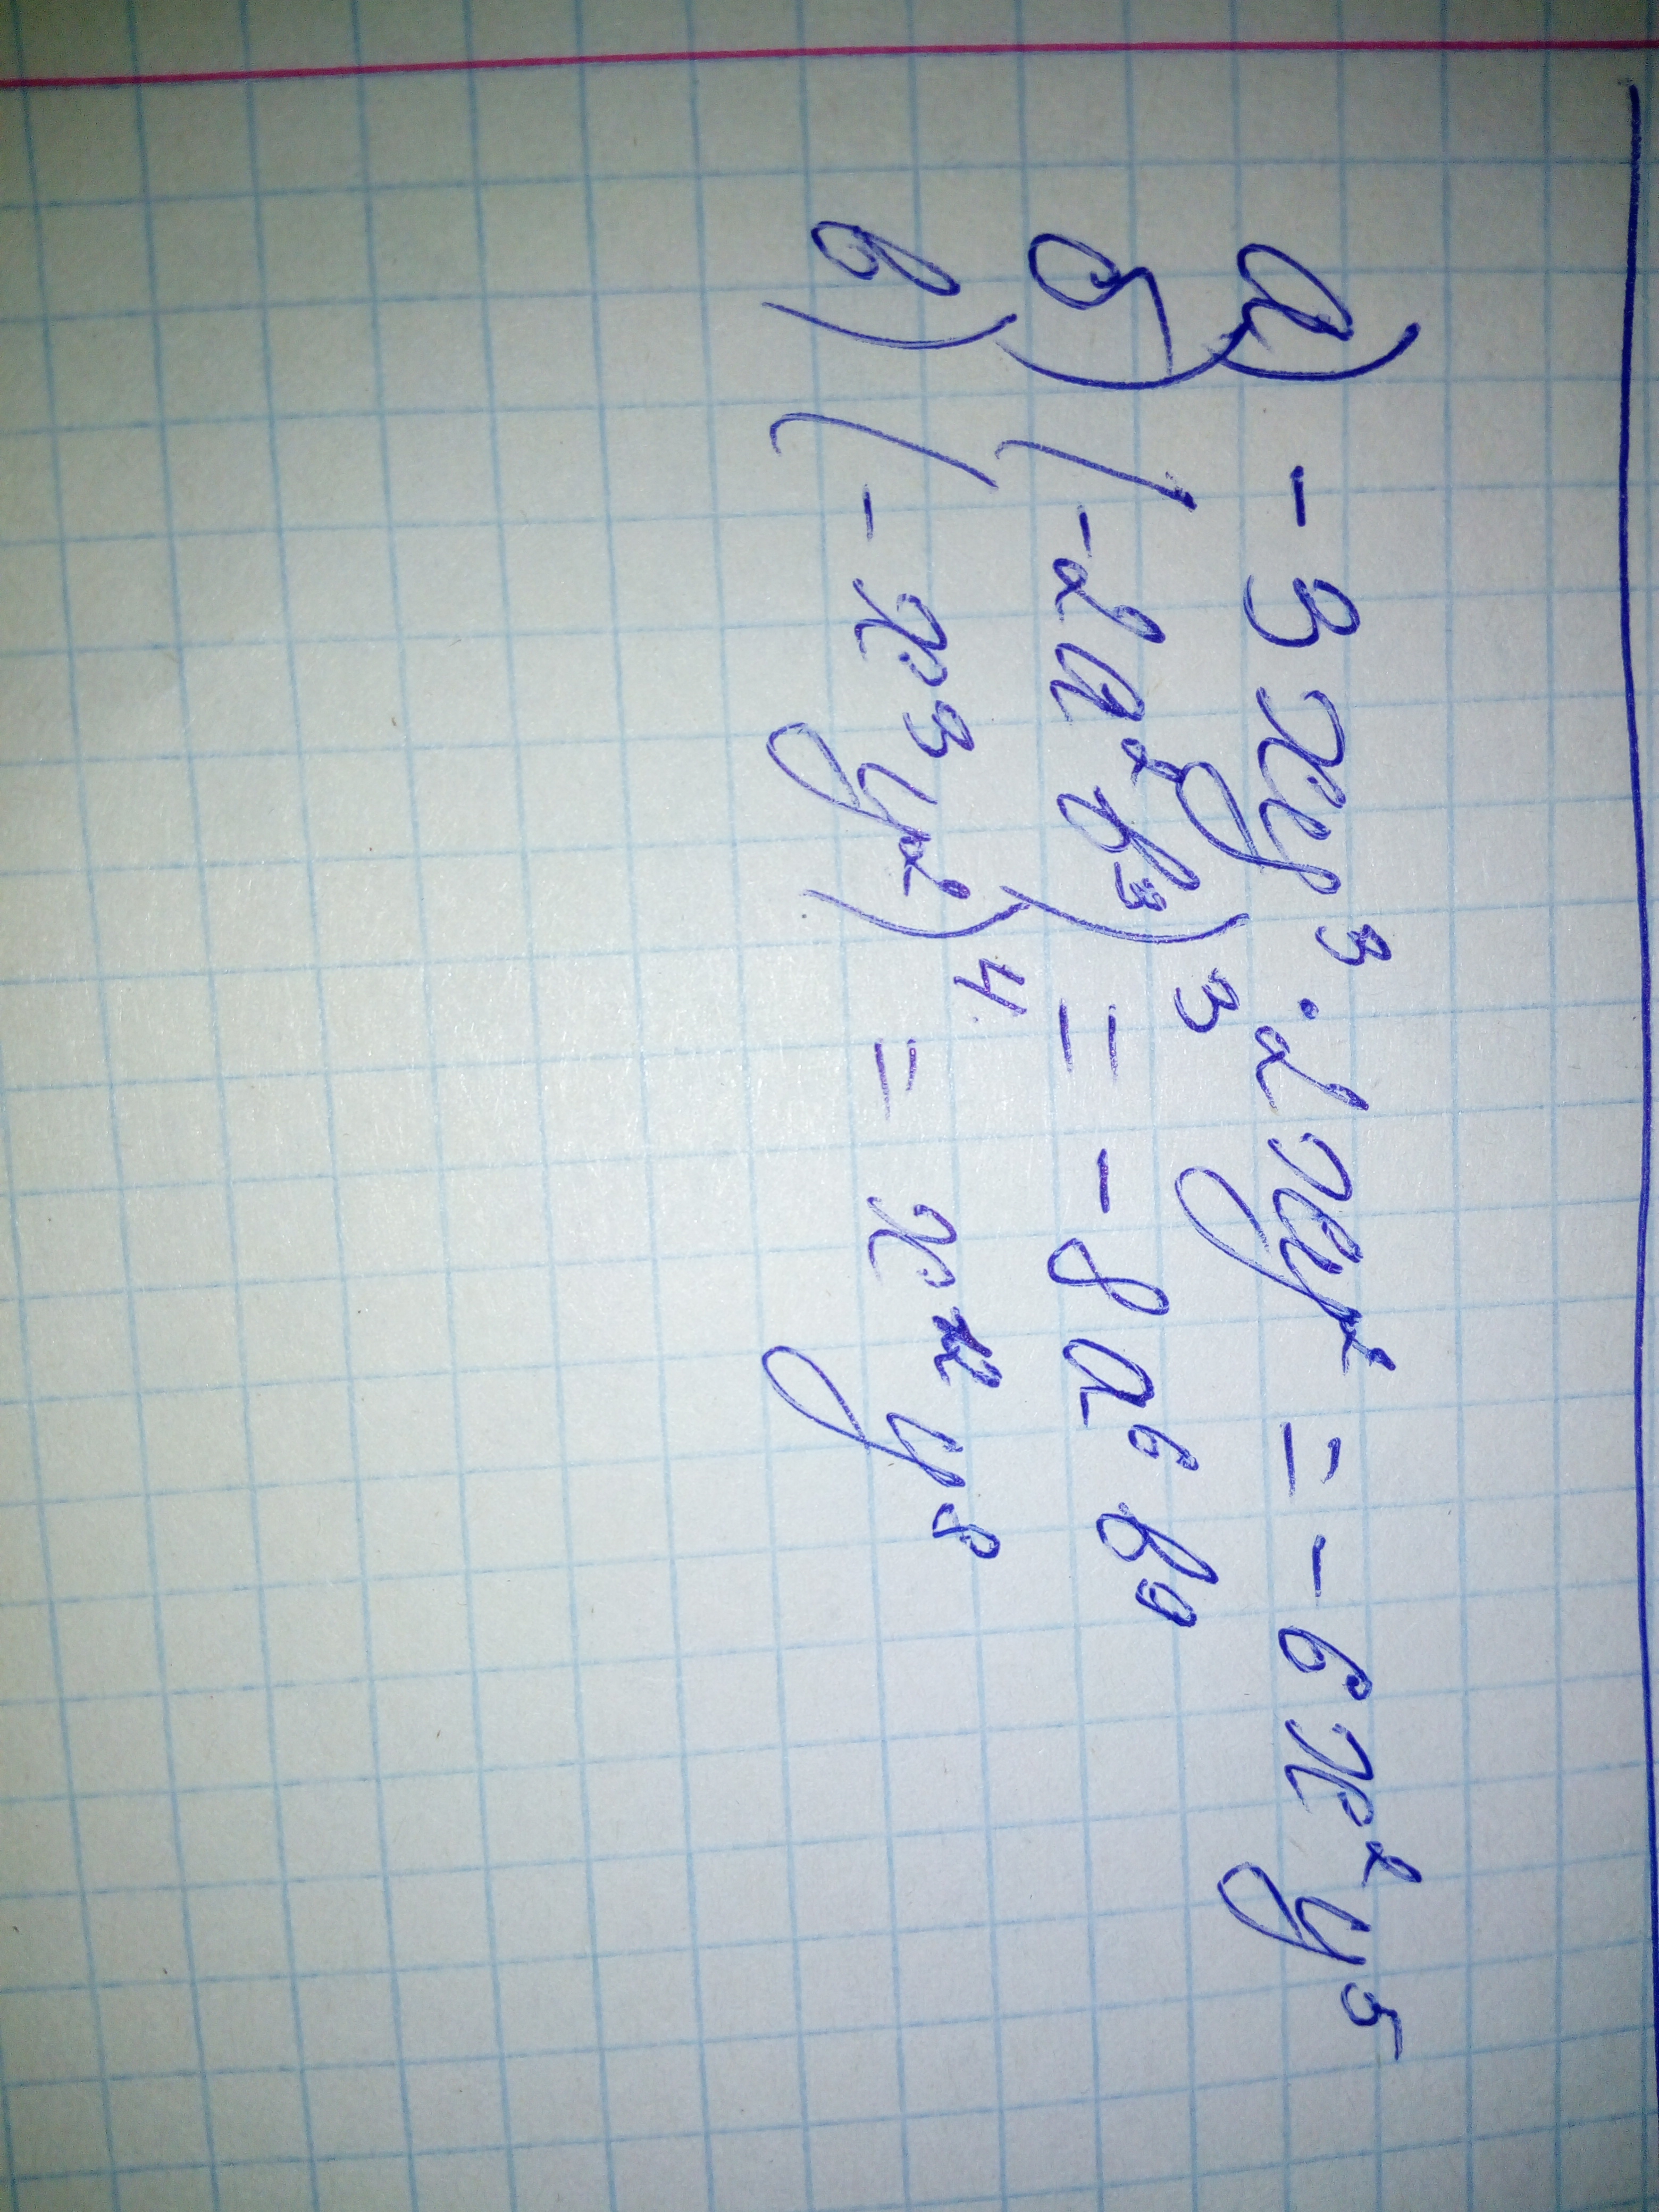 а) -3xy³ · 2xy² = -6x²y⁵
б) (-2a²b³)³ = -8a⁶b⁹
в) (-x³y²)⁴ = x¹²y⁸